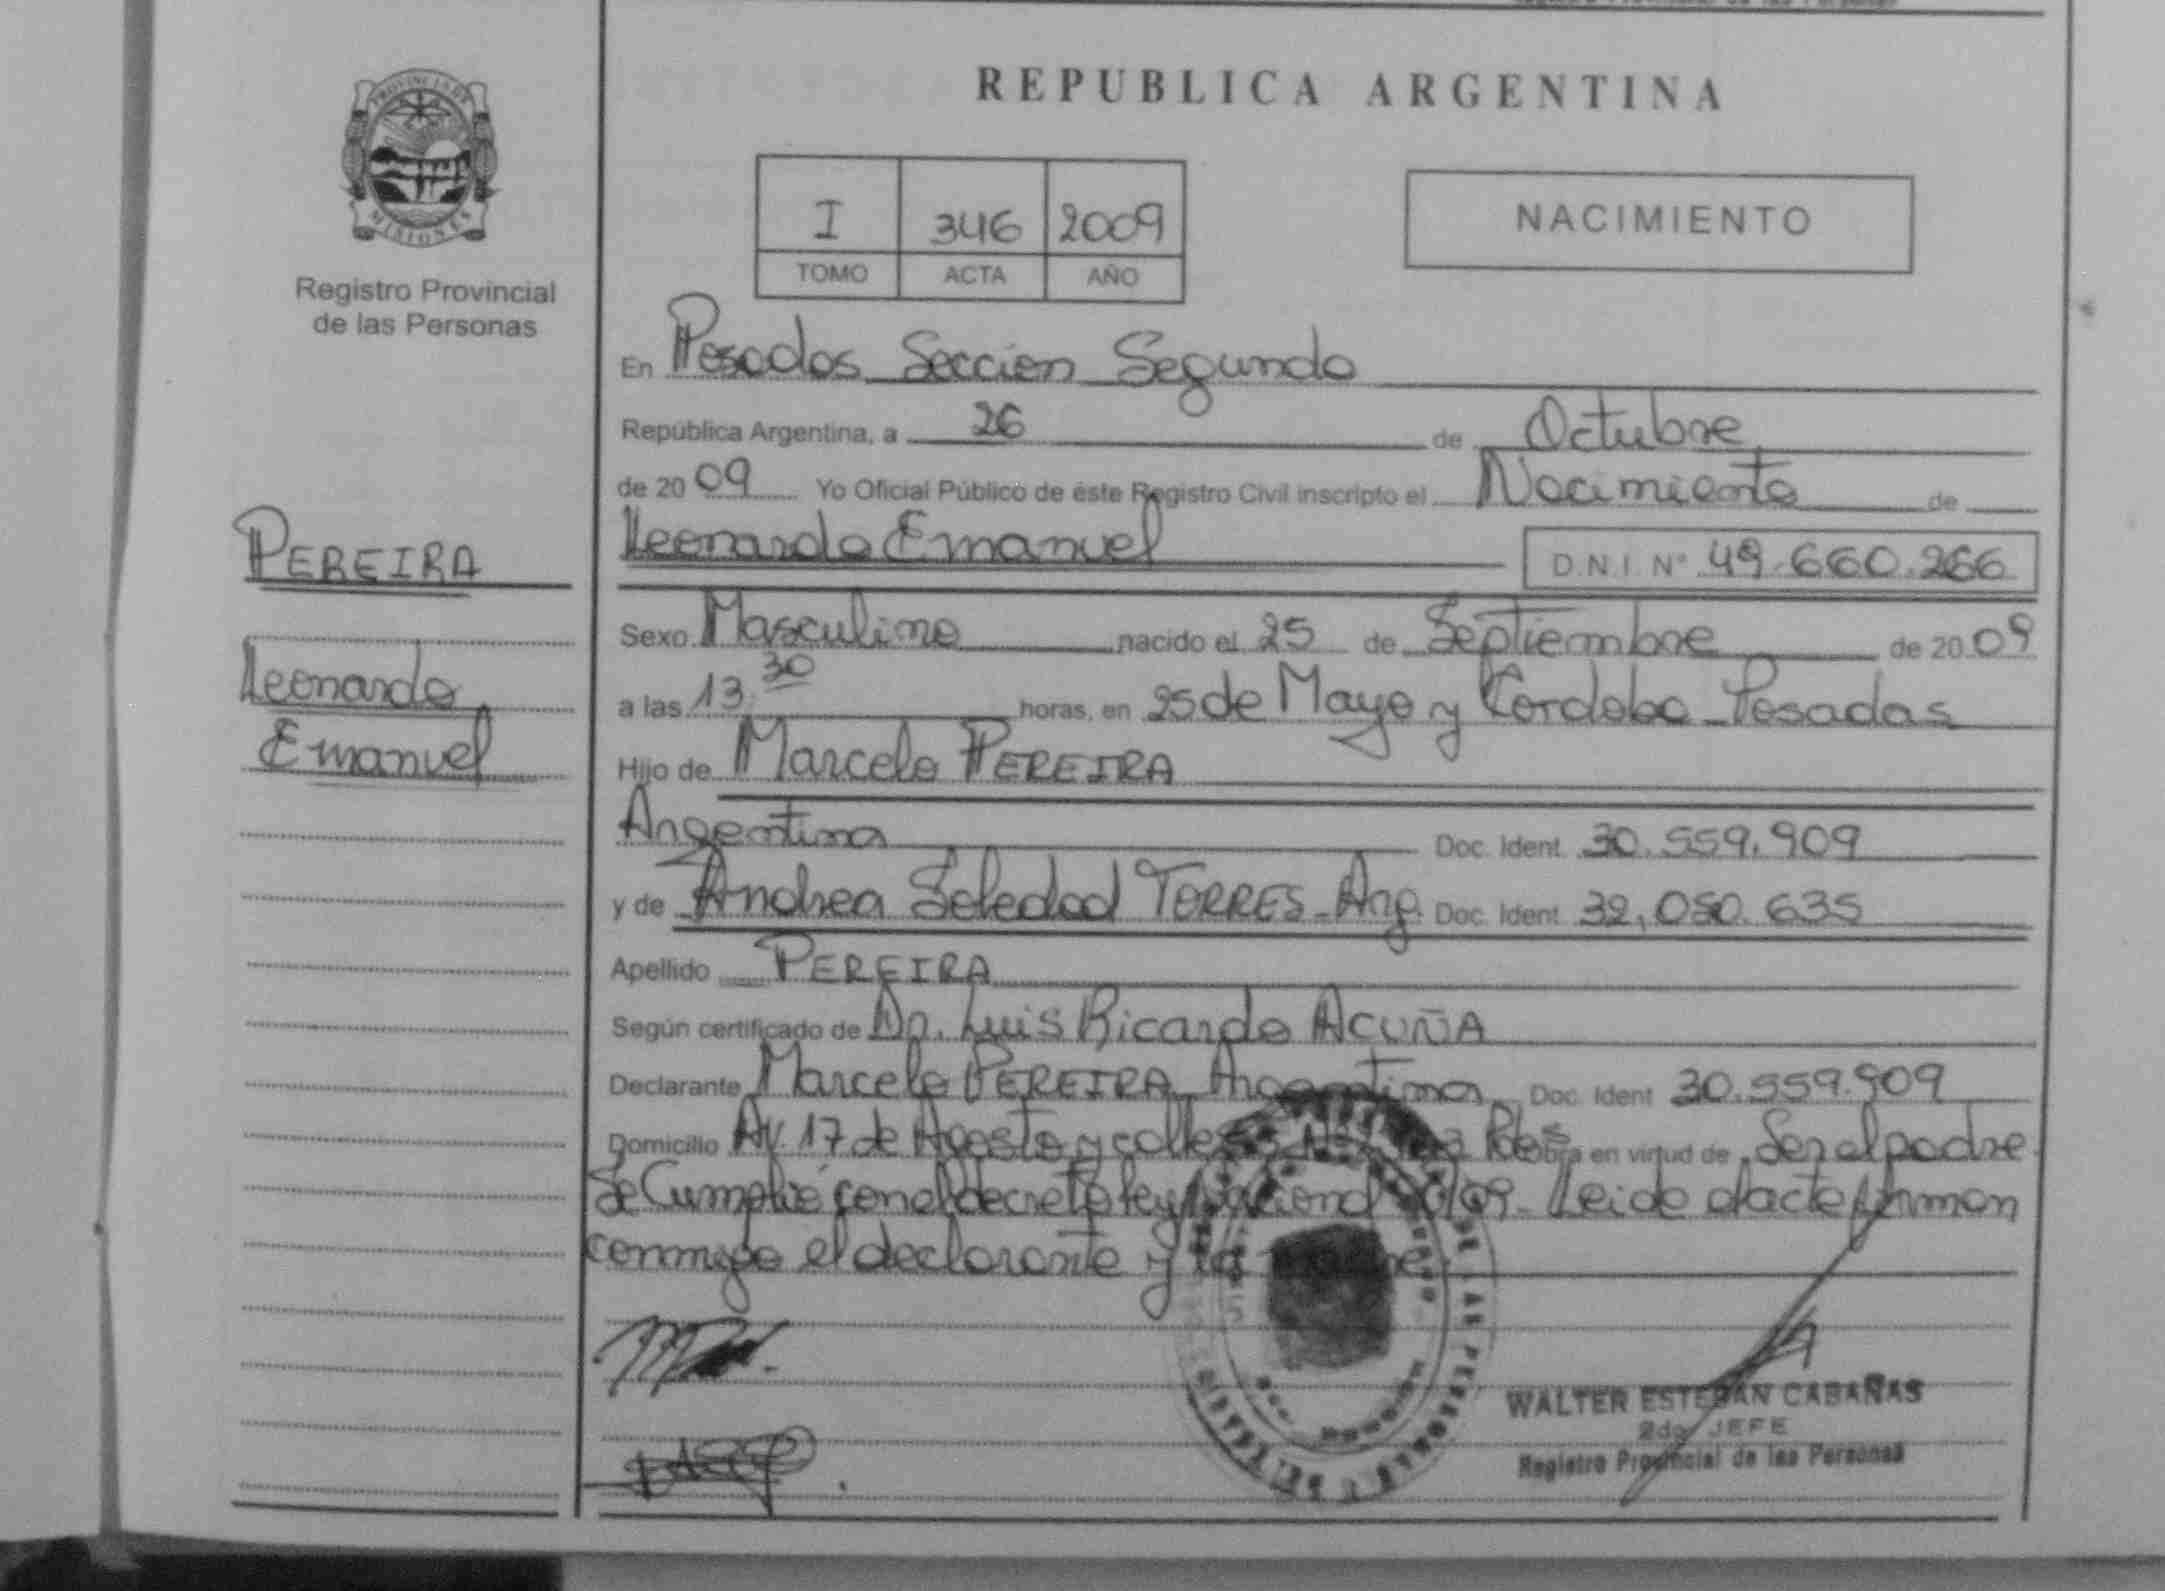 REPUBLICA ARGENTINA
PROVINCIA DE
MISIONES
Registro Provincial
de las Personas
I 346 2009
TOMO ACTA AÑO
NACIMIENTO
En Posadas Sección Segunda
República Argentina, a 26 de Octubre
de 2009 Yo Oficial Público de éste Registro Civil inscripto el Nacimiento de
Leonardo Emanuel D.N.I. Nº 49.660.266
PEREIRA
Leonardo
Emanuel
Sexo Masculino nacido el 25 de Septiembre de 2009
a las 13.30 horas, en 25 de Mayo y Cordoba - Posadas
Hijo de Marcelo PEREIRA
Argentina Doc. Ident. 30.559.909
y de Andrea Soledad TORRES - Arg. Doc. Ident. 32.050.635
Apellido PEREIRA
Según certificado de Dr. Luis Ricardo ACUÑA
Declarante Marcelo PEREIRA Argentina Doc. Ident 30.559.909
Domicilio Av. 17 de Agosto y calle Pdas obra en virtud de Ser el padre
Se Cumplió con el decreto ley Leida el acta firman
conmigo el declarante y la
DE LAS PERSONAS
WALTER ESTEBAN CABAÑAS
2do JEFE
Registro Provincial de las Personas